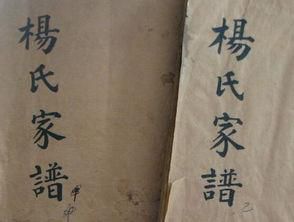 楊氏家譜
楊氏家譜
乙